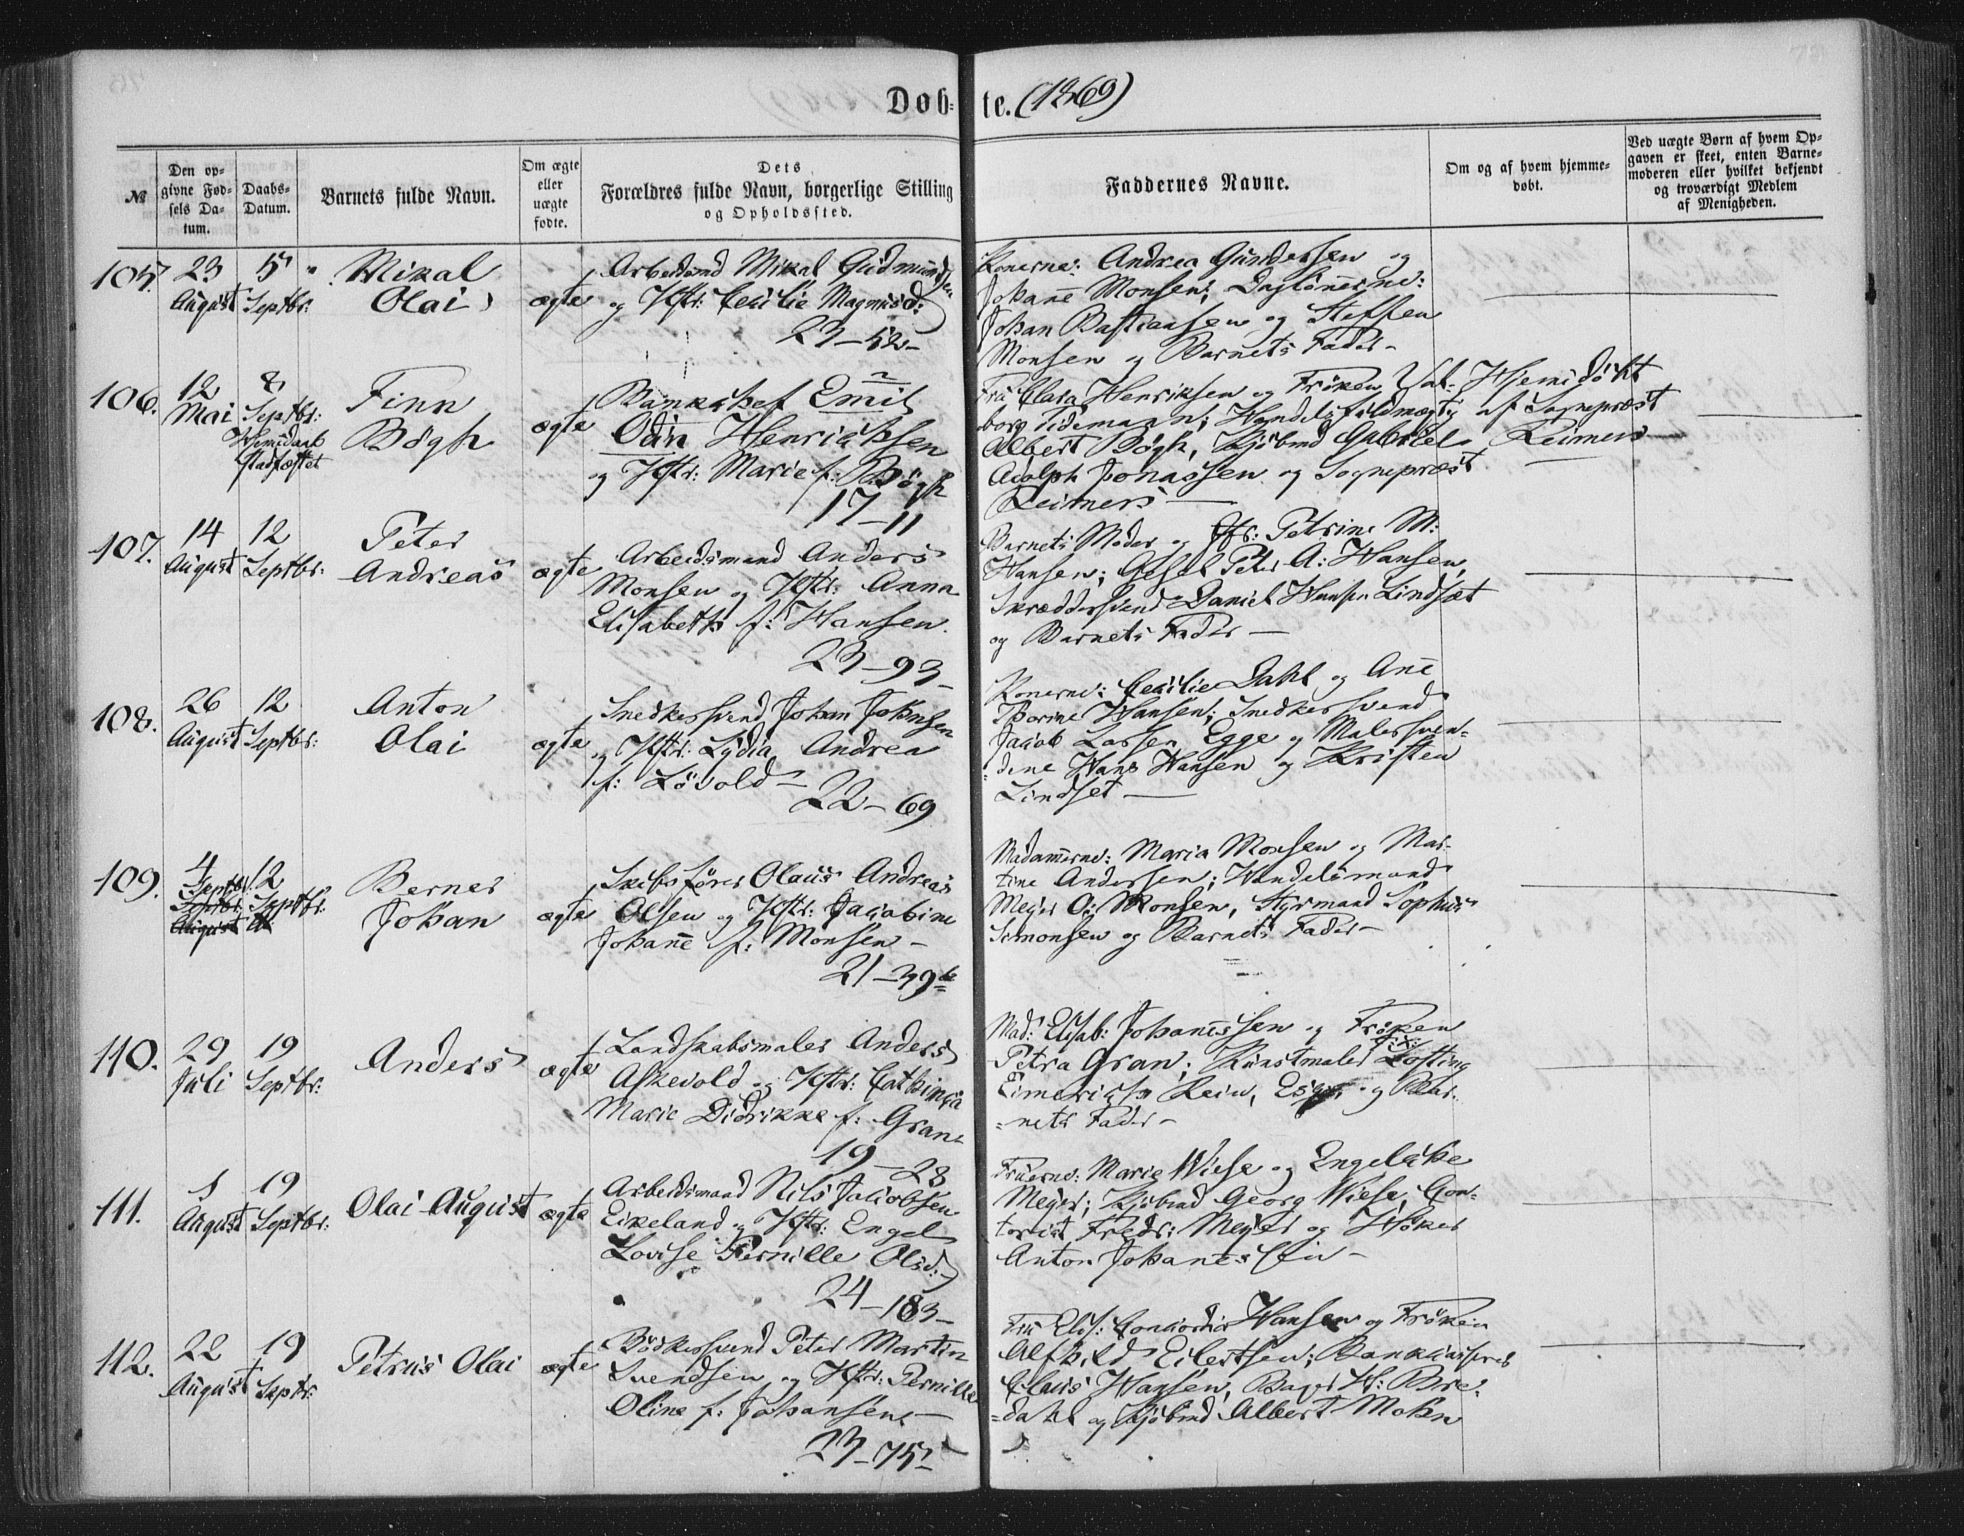 Døb- te. (1869)
№
Den op-
givne Fød-
sels Da-
tum.
Daabs-
Datum.
Barnets fulde Navn.
Om ægte
eller
uægte
fødte.
Dets
Forældres fulde Navn, borgerlige Stilling
og Opholdssted.
Faddernes Navne.
Om og af hvem hjemme-
døbt.
Ved uægte Børn af hvem Op-
gaven er skeet, enten Barne-
moderen eller hvilket bekjendt
og troværdigt Medlem
af Menigheden.
105.
23
August
5
Septbr:
Mikal
Olai
ægte
Arbeidsmd Mikal Gudmundsen
og Hstr: Cecilie Magnusd:
23-52-
Konerne: Andrea Gundersen og
Johane Monsen; Daglönerne:
Johan Bastiansen og Steffen
Monsen og Barnets Fader-
106.
12
Mai
8
Septbr:
Hjemdaab
stadfæstet
Finn
Bögh
ægte
Bankchef Emil
Odin Henrichsen
og Hstr: Marie f: Bögh
17-11
Fru Clara Henriksen og Fröken Val-
borg Tidemann; Handelsfuldmægtig
Albert Bögh, Kjöbmd Gabriel
Adolph Jonassen og Sognepræst
Reimers
Hjemmedöbt
af Sognepræst
Reimers
107.
14
August
12
Septbr:
Peter
Andreas
ægte
Arbeidsmand Anders
Monsen og Hstr: Anna
Elisabeth f: Hansen.
23-93-
Barnets Moder og Jfr: Petrine M:
Hansen; Gesel Peter A: Hansen,
Skræddersvend Daniel Hansen Lindsæt
og Barnets Fader
108.
26
August
12
Septbr:
Anton
Olai
ægte
Snedkersvend Johan Johnsen
og Hstr: Lydia Andrea
f: Lövold-
22-69
Konerne: Cecilie Dahl og Ane
Thorine Hansen; Snedkersvend
Jacob Larsen Egge og Malersven-
dene Hans Hansen og Kristen
Lindset
109.
4
Septbr:
12
Septbr:
August
Berner
Johan
ægte
Skibsförer Olaus Andreas
Olsen og Hstr: Jacobine
Johane f: Monsen-
21-39
Madamerne: Maria Monsen og Mar-
tine Andersen; Handelsmand
Meyer O: Monsen, Styrmand Sophus
Simonsen og Barnets Fader-
110.
29
Juli
19
Septbr:
Anders
ægte
Landskabsmaler Anders
Askevold og Hstr: Cathinca
Marie Didrikke f: Gran
19-28
Mad: Elisab: Johanessen og Fröken
Petra Gran; Kunstmaler Losting
Eimerich Rein, og Bar-
nets Fader-
111.
1
August
19
Septbr:
Olai August
ægte
Arbeidsmand Nils Jacobsen
Eikeland og Hstr: Engel
Lovise Pernille Olsd:
24-183-
Fruerne: Marie Wiese og Engelche
Meyer; Kjöbmd Georg Wiese, Con-
torist Fredr: Meyer og Höker
Anton Johanessen-
112.
22
August
19
Septbr:
Petrus Olai
ægte
Bödkersvend Peter Martin
Svendsen og Hstr: Pernille
Oline f: Johansen
23-75-
Fru Elis: Concordia Hansen og Fröken
Alfhild Eilertsen; Bankkasserer
Claus Hansen, Bager H: Bre-
dahl og Kjöbmd Albert Mohn